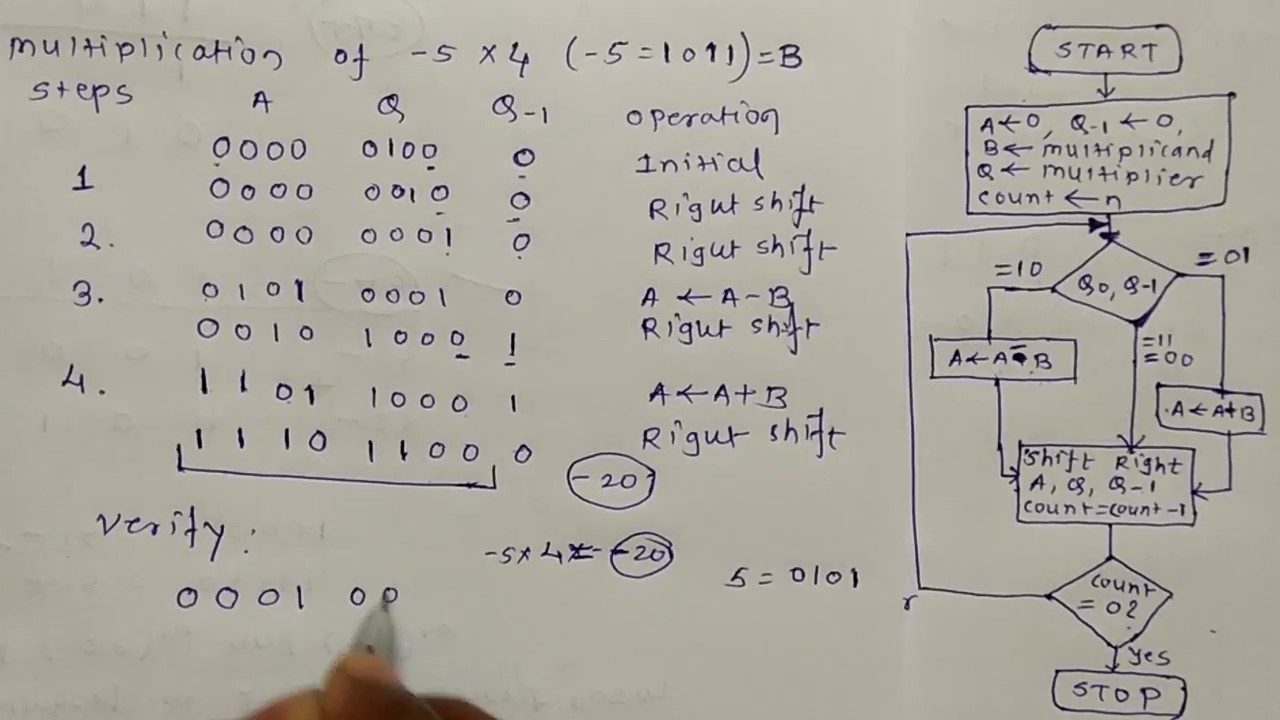 multiplication of -5 × 4 (-5 = 1011) = B
steps A Q Q-1 operation
0000 0100 0 Initial
1 0000 0010 0 Rigut shift
2. 0000 0001 0 Rigut shift
3. 0101 0001 0 A ← A - B
0010 1000 1 Rigut shift
4. 1101 1000 1 A ← A + B
1110 1100 0 Rigut shift
-20
verify:
-5 × 4 = -20
5 = 0101
0001 00
START
A ← 0, Q-1 ← 0,
B ← multiplicand
Q ← multiplier
count ← n
Q0, Q-1
=10
=01
=11
=00
A ← A - B
A ← A + B
Shift Right
A, Q, Q-1
count = count - 1
count
= 0?
yes
STOP